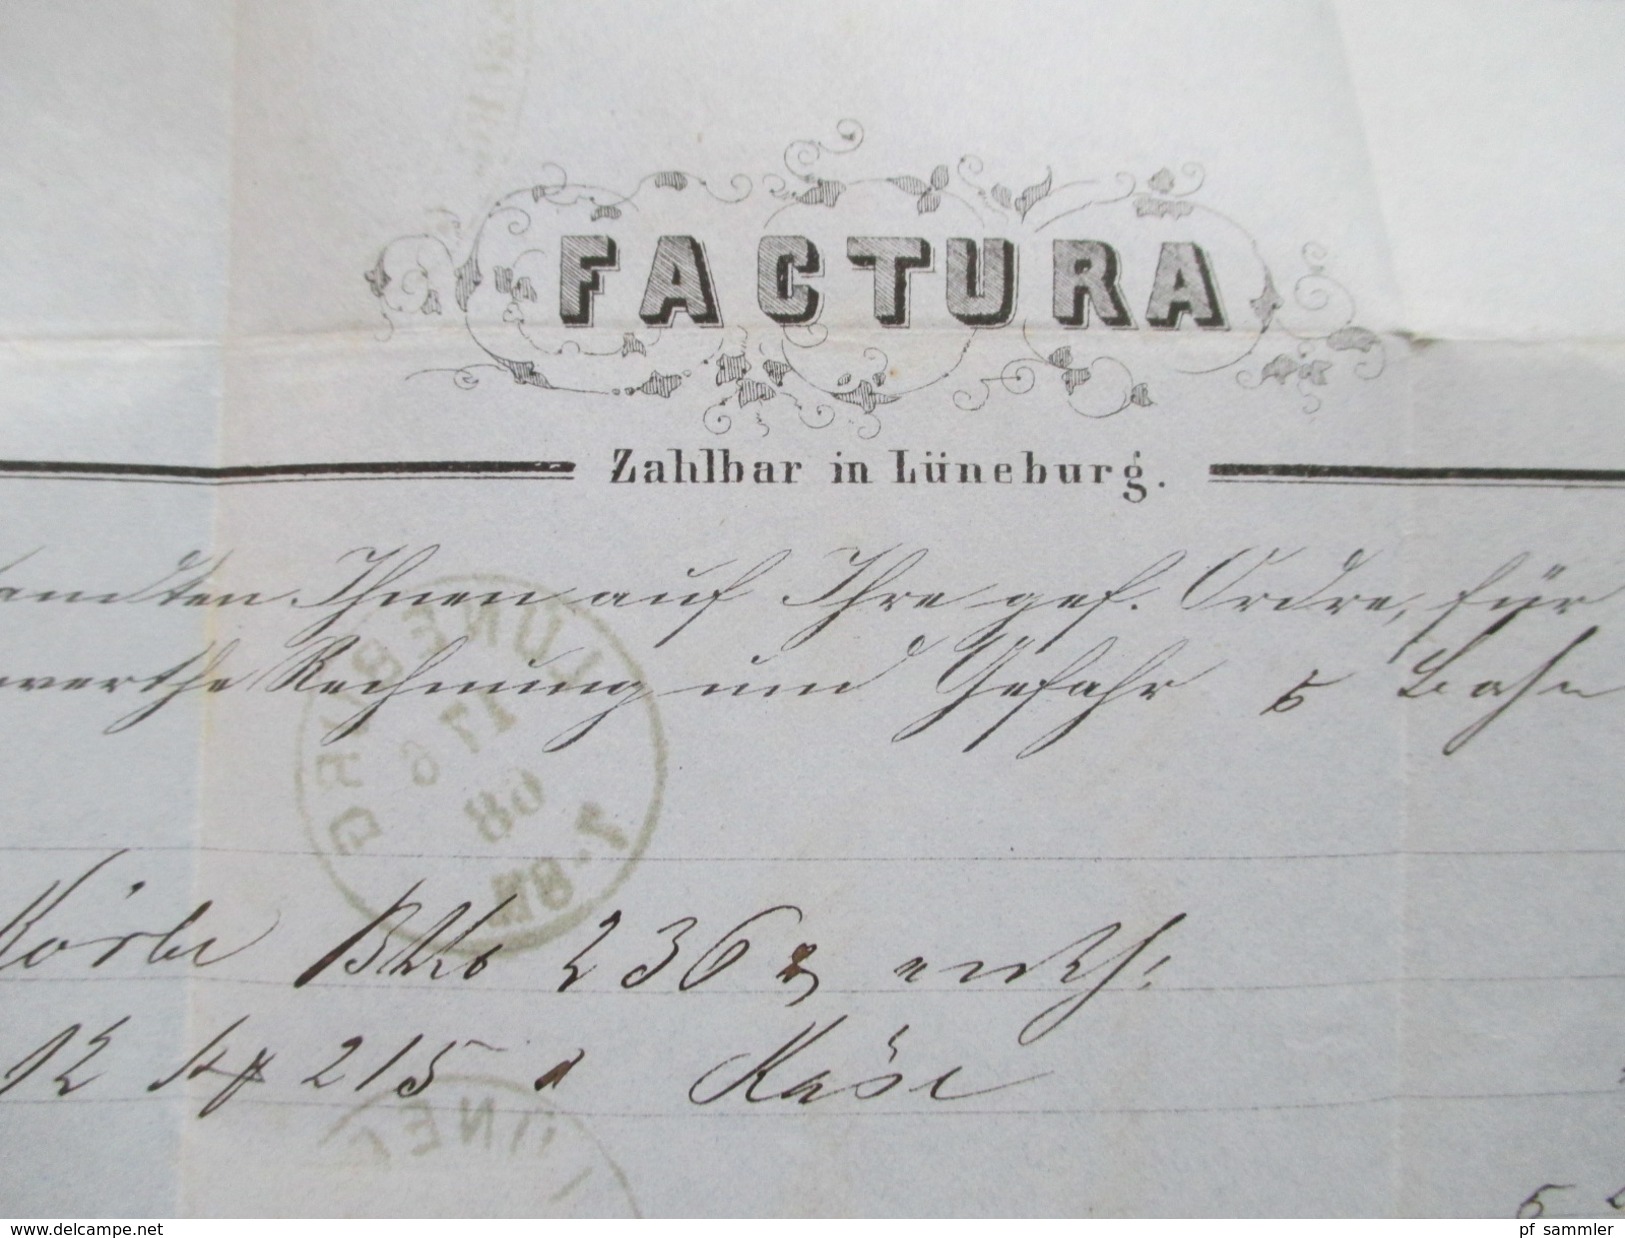 FACTURA
Zahlbar in Lüneburg.
sandten Ihnen auf Ihre gef. Ordre, für
werthe Rechnung und Gefahr Bahn
LÜNEBURG
17 6
68
7-8N
Körbe 236 enth:
12 215 Käse
LÜNEB
5
www.delcampe.net
pf_sammler